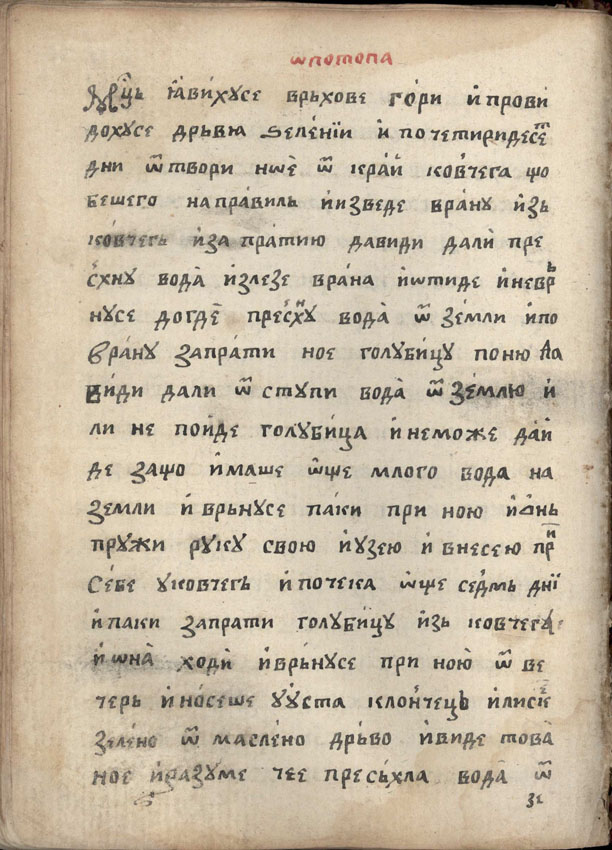 ѡпотопа
мⷭ҇ць ꙗ҆ви́хꙋсе врьхове го́ри и҆ прови
дохꙋсе дрьвꙗ ѕеле́нїи и҆ по четиридесе́ⷮ
дни ѿтвори ноѐ ѿ кра́й ко́вчега що
бешего напра́виль и҆изведе вра́нꙋ и҆зь
ко́вчегь и҆за пра́тию да види дали̇̀ пре
с́хнꙋ вода̀ и҆злезе вра́на и҆ѡтиде и҆невр̾
нꙋсе догде̄ прес́хⷩ҇ꙋ вода̀ ѿ зе́мли и҆по
вра́нꙋ запра́ти ное голꙋби́цꙋ по ню да
види дали ѿстꙋпи вода̀ ѿ зе́млю и҆
ли не по́йде голꙋби́ца и҆неможе да́й
де защо и҆маше ѡ҆ще млого вода на
земли и҆ врьнꙋсе па́ки при ною и҆ѻ́нь
прꙋжи рꙋкꙋ свою и҆ꙋзею и҆ внесею прⷩ҇
себе ꙋковчегь и҆ почека ѡ҆ще се́дмь дни̏
и҆паки запрати голꙋби́цꙋ и҆зь ковчегꙋ
и҆ ѡна̀ ходѝ и҆врьнꙋсе при ною̀ ѿ ве
черь и҆ но́сеше ꙋꙋ́ста клончець и҆лисие
зеле́но ѿ масле́но дрьво и҆виде това̀
ное и҆разꙋме чее пресьхла вода̀ ѿ
зе